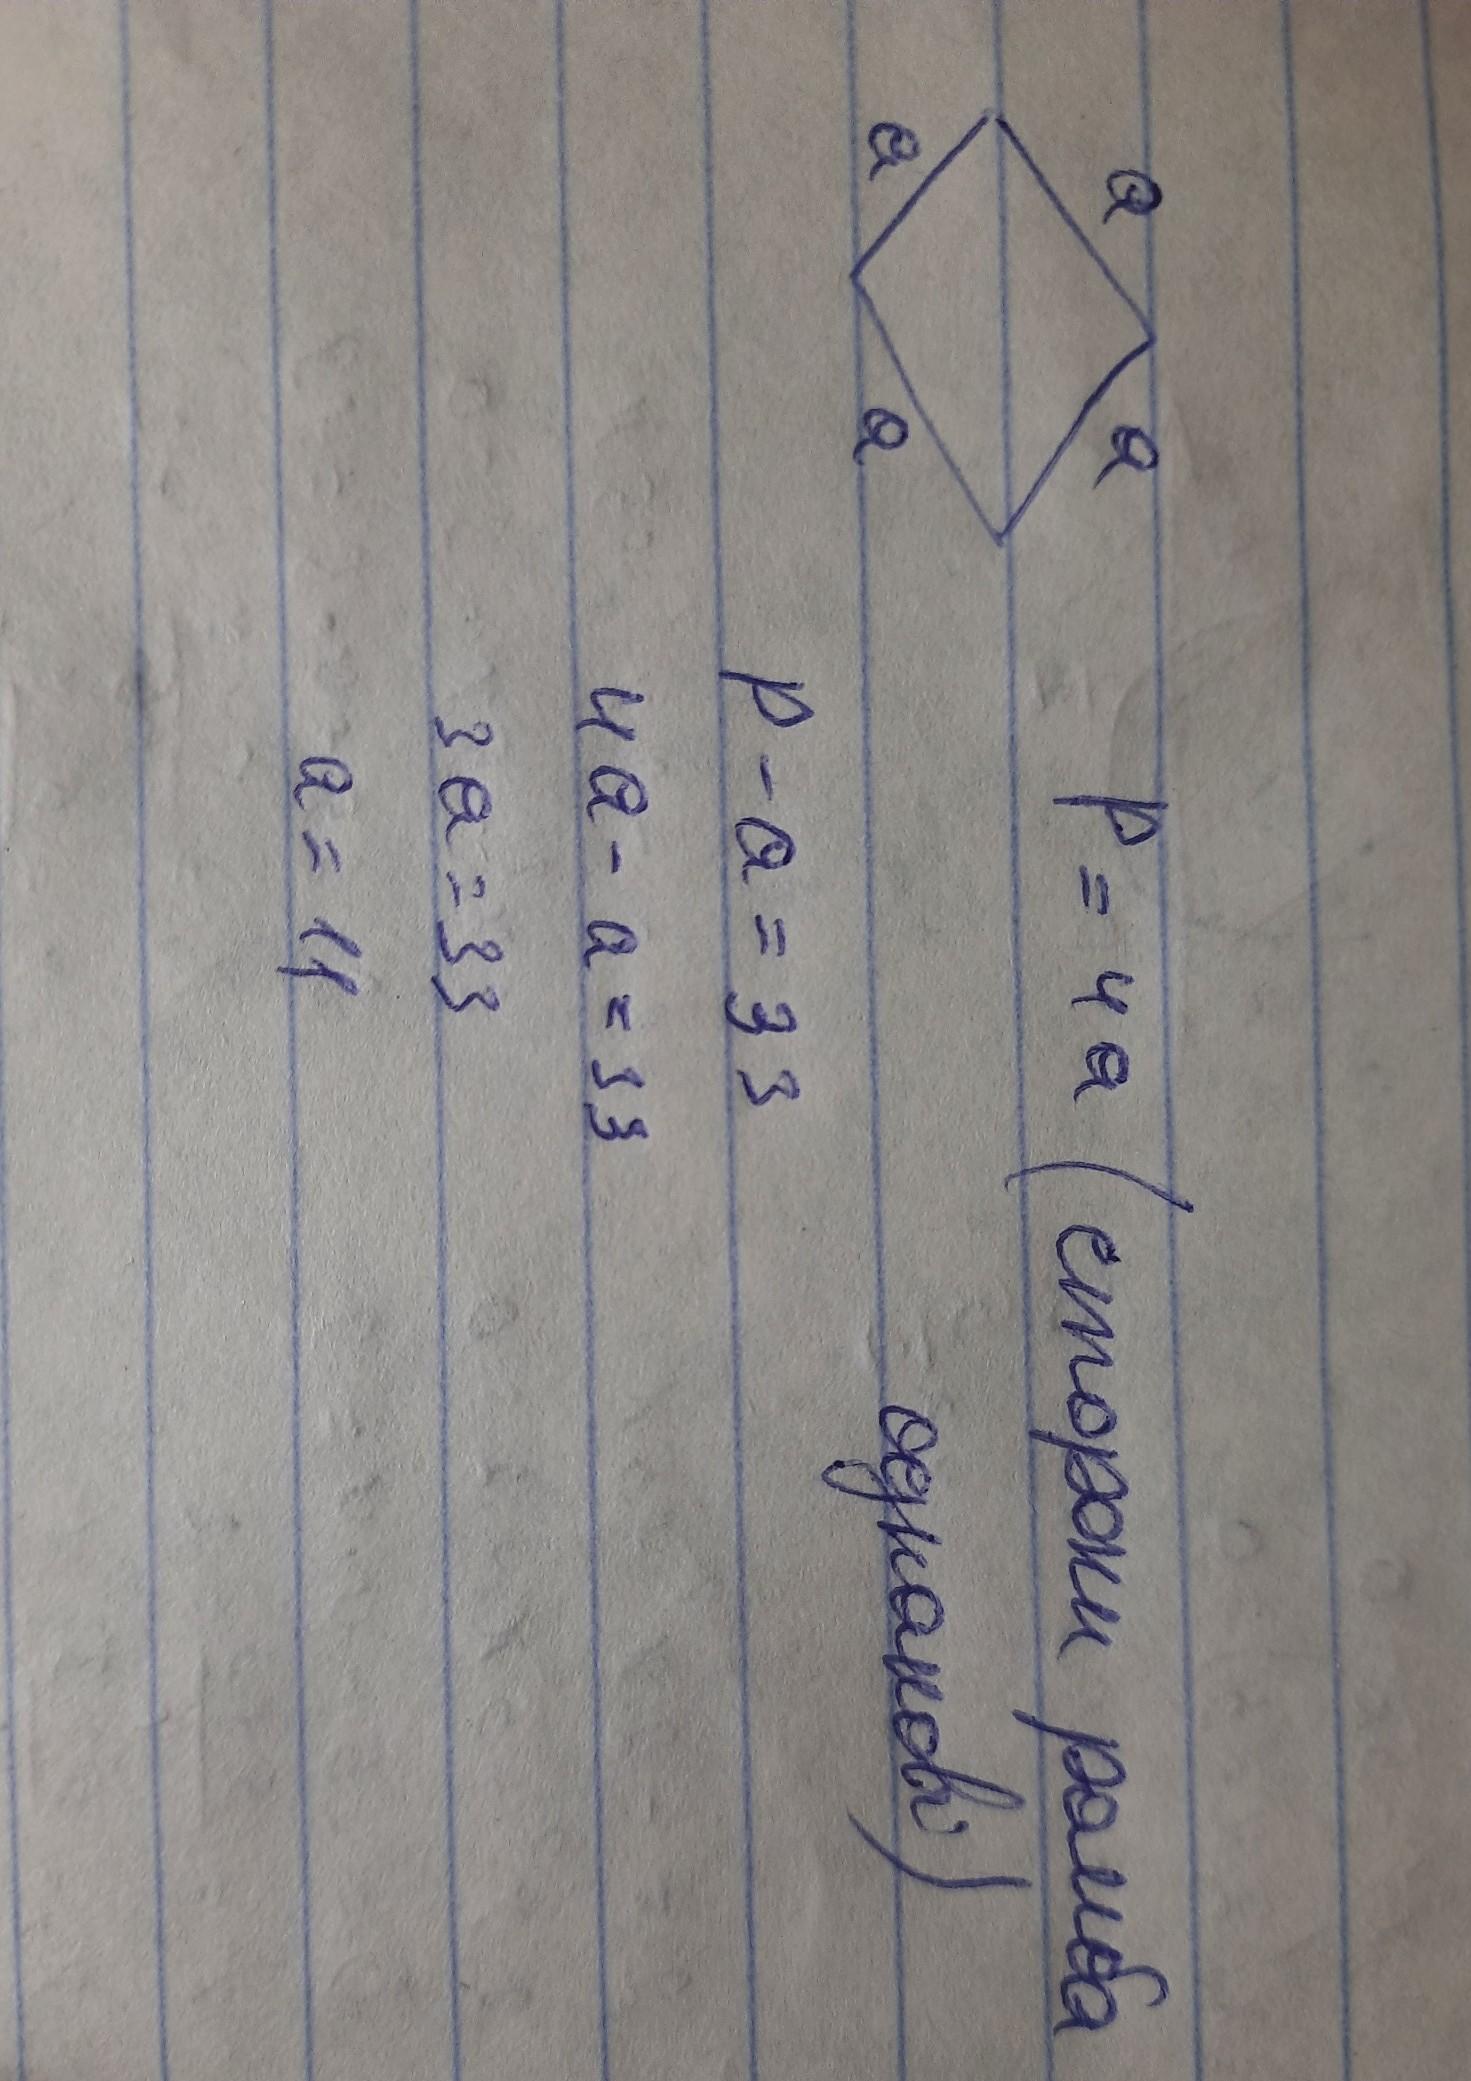 a
a
a
a
P = 4a (сторони ромба
однакові)
P - a = 33
4a - a = 33
3a = 33
a = 11